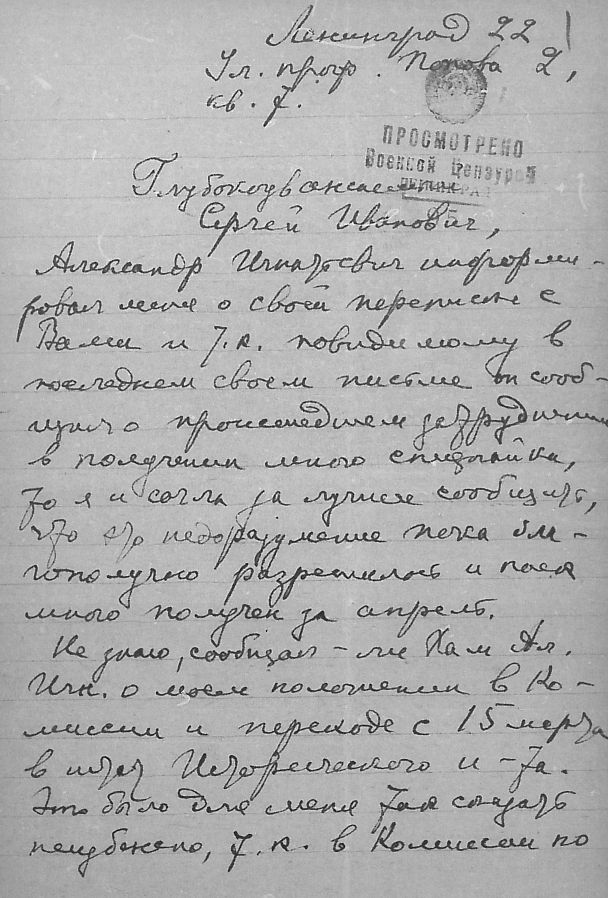 Ленинград 22
Ул. проф. Попова 2,
кв. 7.
ПРОСМОТРЕНО
Военной Цензурой
ЛЕНИНГРАД
Глубокоуважаемый
Сергей Иванович,
Александр Игнатьевич информи-
ровал меня о своей переписке с
Вами и т.к. повидимому в
последнем своем письме он сооб-
щил о происшедшем затруднении
в получении мною спецпайка,
то я и сочла за лучшее сообщить,
что это недоразумение пока бла-
гополучно разрешилось и паек
мною получен за апрель.
Не знаю, сообщал-ли Вам Ал.
Игн. о моем положении в Ко-
миссии и переходе с 15 марта
в штат Исторического и-та.
Это было для меня так сказать
неизбежно, т.к. в Комиссии по